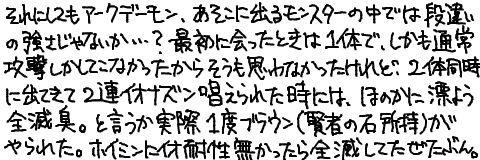 それにしてもアークデーモン、あそこに出るモンスターの中では段違い
の強さじゃないか…?最初に会ったときは1体で、しかも通常
攻撃しかしてこなかったからそうも思わなかったけれど、2体同時
に出てきて2連イオナズン唱えられた時には、ほのかに漂よう
全滅臭。と言うか実際1度ブラウン(賢者の石所持)が
やられた。ホイミンにイオ耐性無かったら全滅してたぜたぶん。